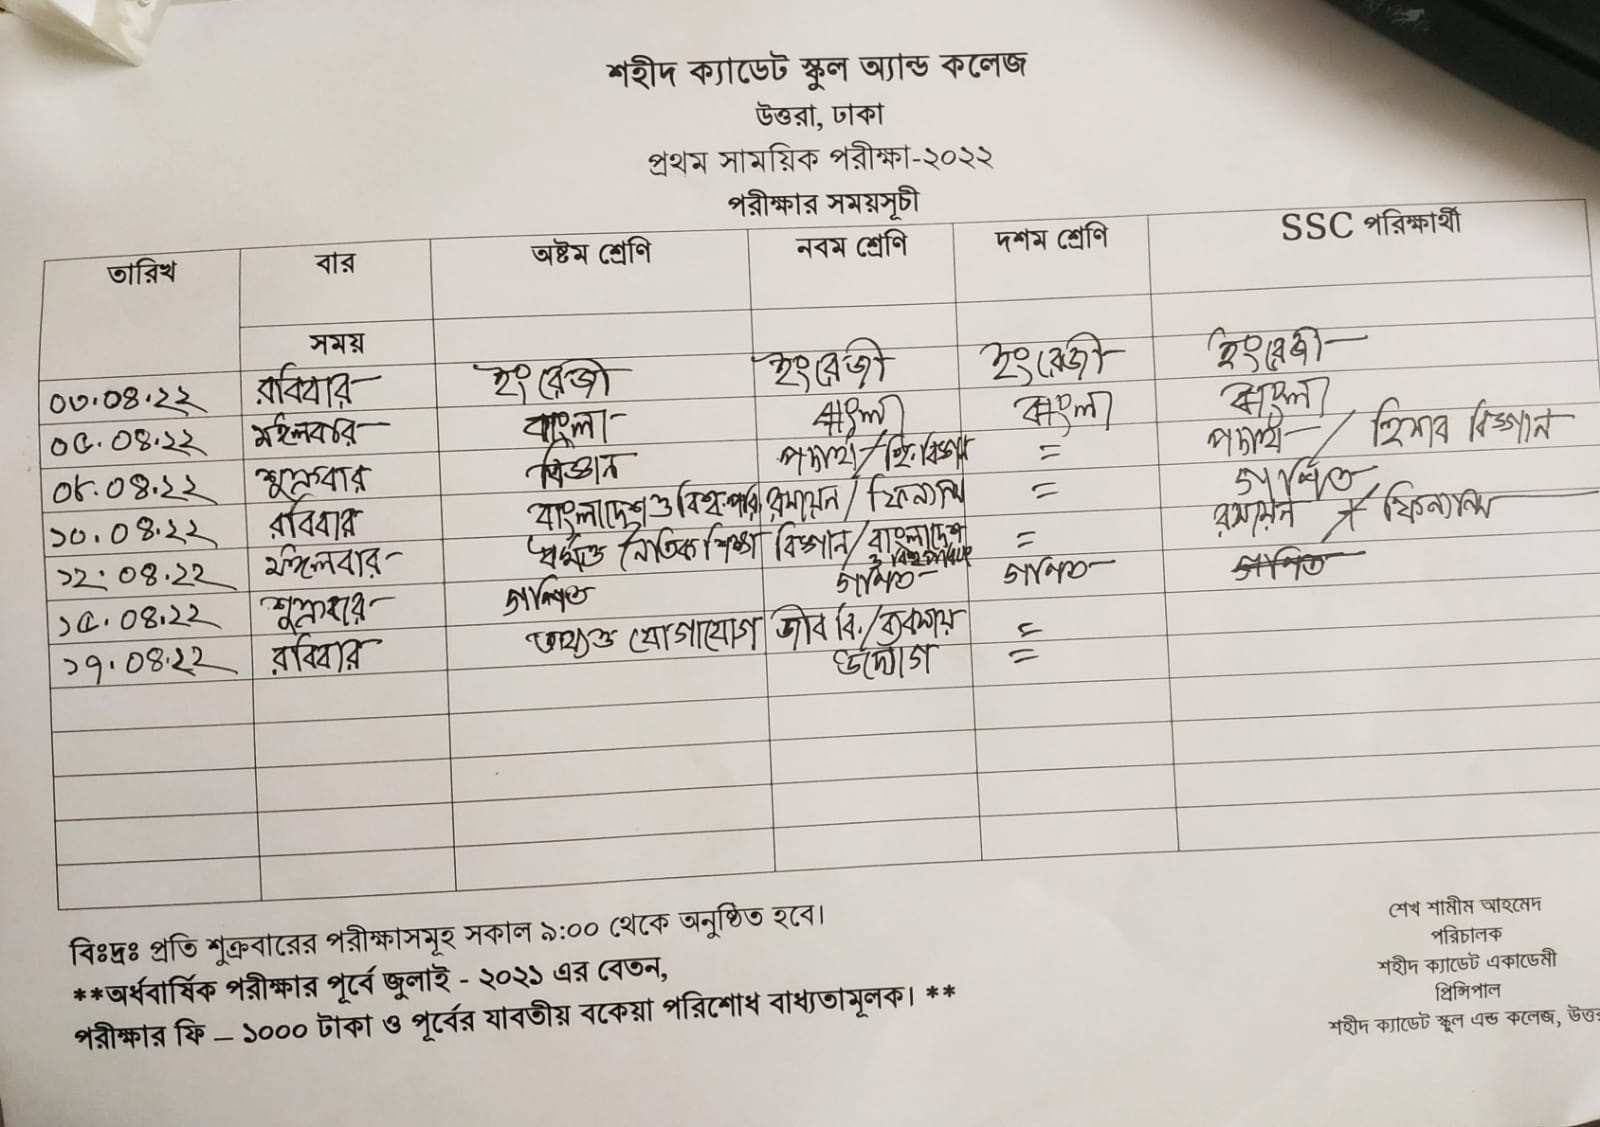 শহীদ ক্যাডেট স্কুল অ্যান্ড কলেজ
উত্তরা, ঢাকা
প্রথম সাময়িক পরীক্ষা-২০২২
পরীক্ষার সময়সূচী
তারিখ বার অষ্টম শ্রেণি নবম শ্রেণি দশম শ্রেণি SSC পরিক্ষার্থী
সময়
০৩.০৪.২২ রবিবার ইংরেজী ইংরেজী ইংরেজী ইংরেজী
০৫.০৪.২২ মঙ্গলবার বাংলা বাংলা বাংলা বাংলা
০৮.০৪.২২ শুক্রবার বিজ্ঞান পদার্থ/হি.বিজ্ঞান = পদার্থ / হিসাব বিজ্ঞান
১০.০৪.২২ রবিবার বাংলাদেশ ও বিশ্ব পরি রসায়ন / ফিন্যান্স = গণিত
১২.০৪.২২ মঙ্গলবার ধর্ম ও নৈতিক শিক্ষা বিজ্ঞান/বাংলাদেশ = রসায়ন / ফিন্যান্স
ও বিশ্ব
১৫.০৪.২২ শুক্রবার গণিত গণিত গণিত গণিত
১৭.০৪.২২ রবিবার তথ্য ও যোগাযোগ জীব বি./ব্যবসায় =
উদ্যোগ =
বিঃদ্রঃ প্রতি শুক্রবারের পরীক্ষাসমূহ সকাল ৯:০০ থেকে অনুষ্ঠিত হবে।
**অর্ধবার্ষিক পরীক্ষার পূর্বে জুলাই - ২০২১ এর বেতন,
পরীক্ষার ফি – ১০০০ টাকা ও পূর্বের যাবতীয় বকেয়া পরিশোধ বাধ্যতামূলক। **
শেখ শামীম আহমেদ
পরিচালক
শহীদ ক্যাডেট একাডেমী
প্রিন্সিপাল
শহীদ ক্যাডেট স্কুল এন্ড কলেজ, উত্তর